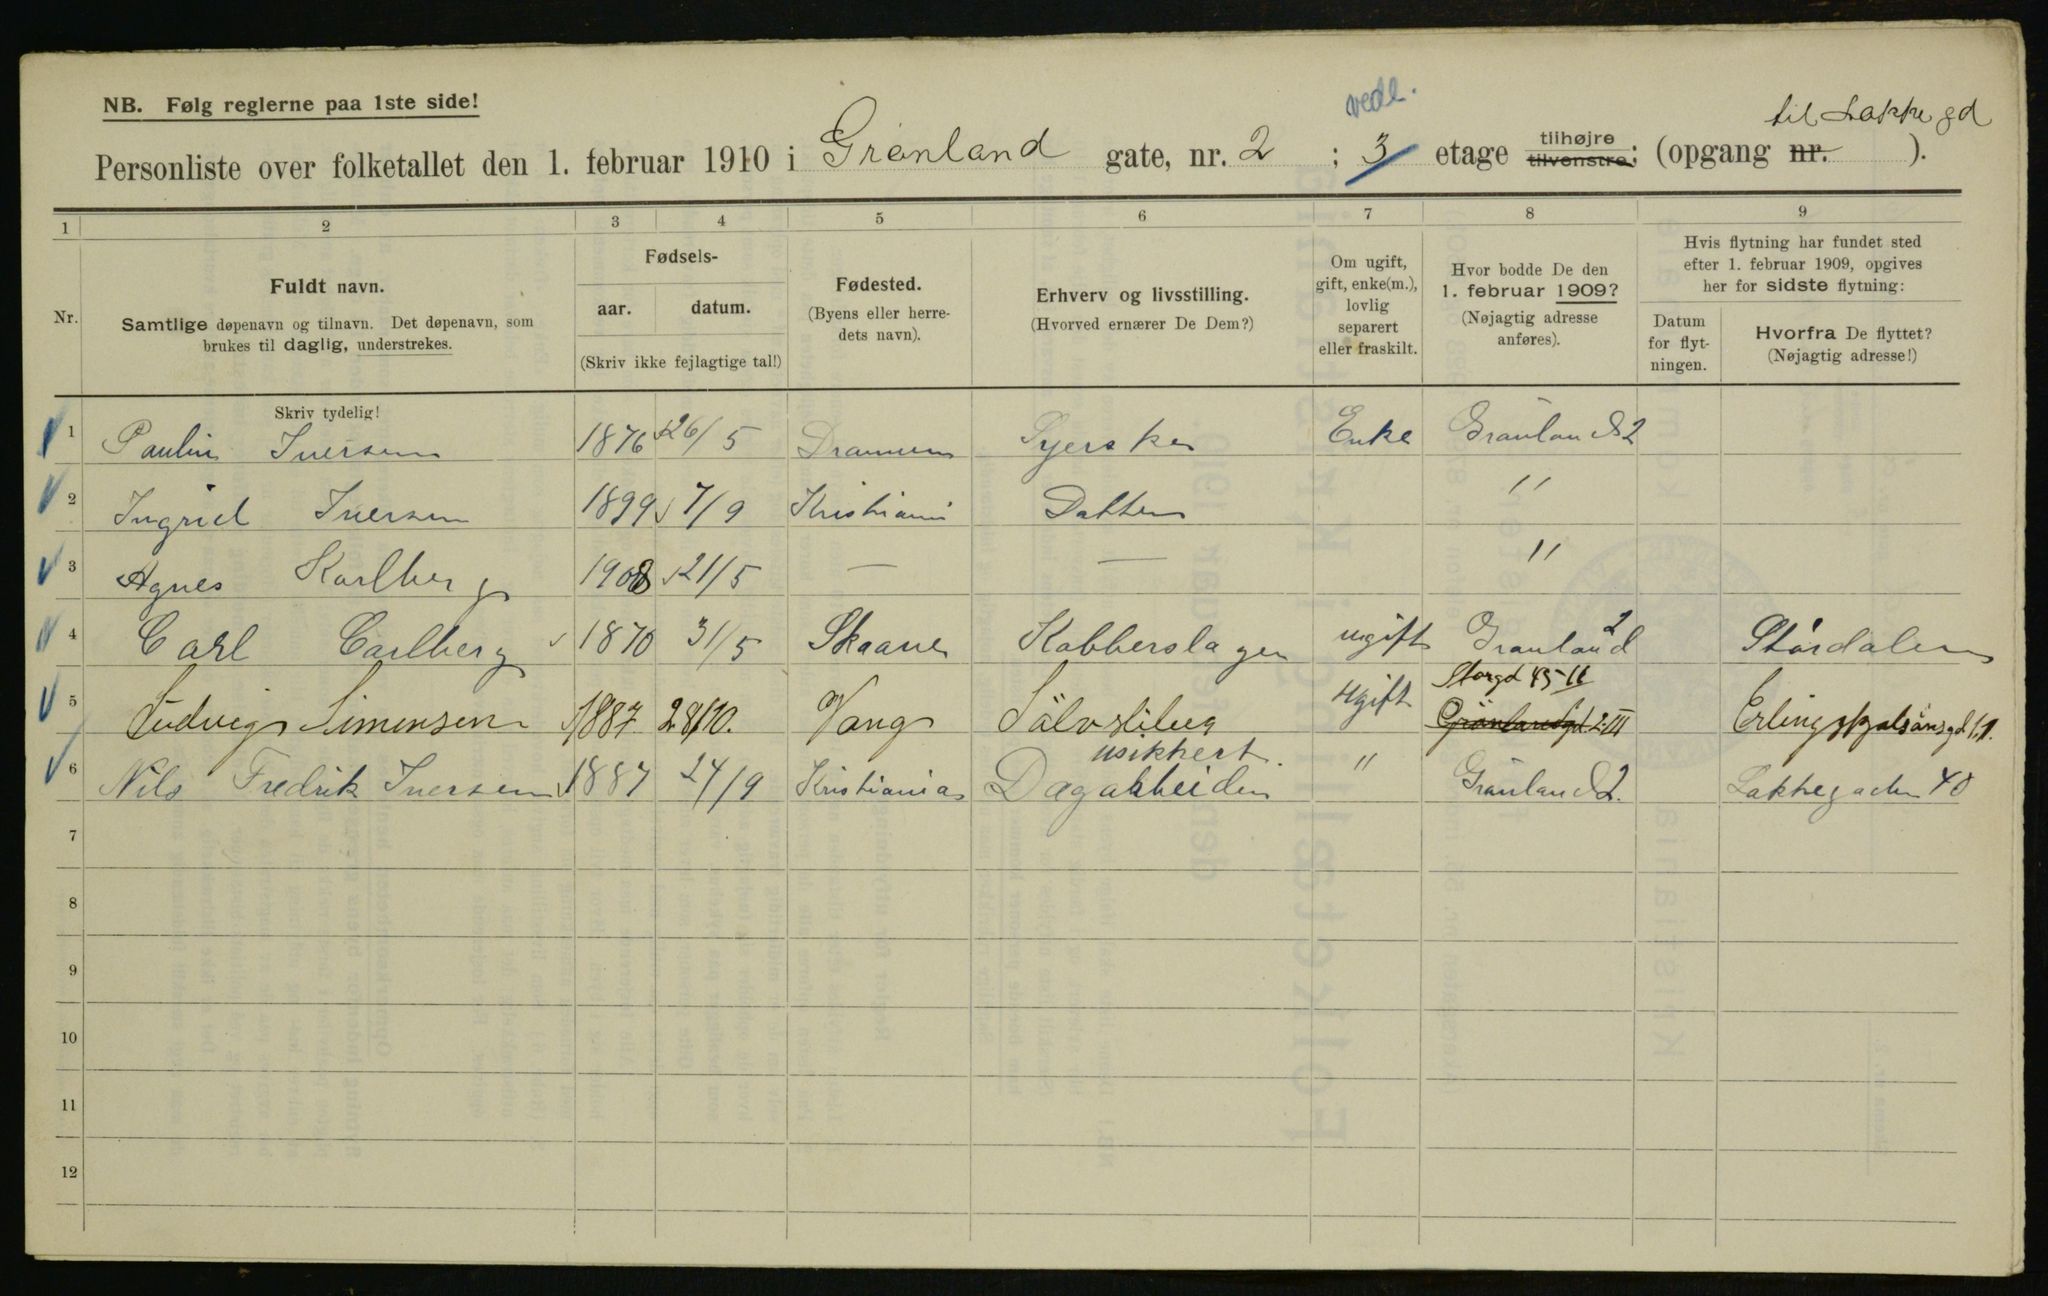 NB. Følg reglerne paa 1ste side!
vedl.
til Lakkegd
Personliste over folketallet den 1. februar 1910 i Grønland gate, nr. 2 ; 3 etage tilhøjre tilvenstre; (opgang nr. ).
1 2 3 4 5 6 7 8 9
Nr.
Fuldt navn.
Samtlige døpenavn og tilnavn. Det døpenavn, som
brukes til daglig, understrekes.
Skriv tydelig!
Fødsels-
aar. datum.
(Skriv ikke fejlagtige tal!)
Fødested.
(Byens eller herre-
dets navn).
Erhverv og livsstilling.
(Hvorved ernærer De Dem?)
Om ugift,
gift, enke(m.),
lovlig
separert
eller fraskilt.
Hvor bodde De den
1. februar 1909?
(Nøjagtig adresse
anføres).
Hvis flytning har fundet sted
efter 1. februar 1909, opgives
her for sidste flytning:
Datum
for flyt-
ningen.
Hvorfra De flyttet?
(Nøjagtig adresse!)
1 Paulin Iversen 1876 26/5 Drammen Syerske Enke Grønland 2
2 Ingrid Iversen 1899 7/9 Kristiania Datter "
3 Agnes Karlberg 1908 21/5 — — "
4 Carl Carlberg 1870 31/5 Skaane Kobberslager ugift Grønland 2 Stördalen
5 Ludvig Simensen 1887 28/10. Vang Sölvsliber ugift Storgd 45-II Grönlandsgd 2.III Erling skjalsönsgd 1.1.
6 Nils Fredrik Iversen 1887 24/9 Kristiania usikkert. Dagarbeider " Grønland 2. Lakkegaden 40
7
8
9
10
11
12